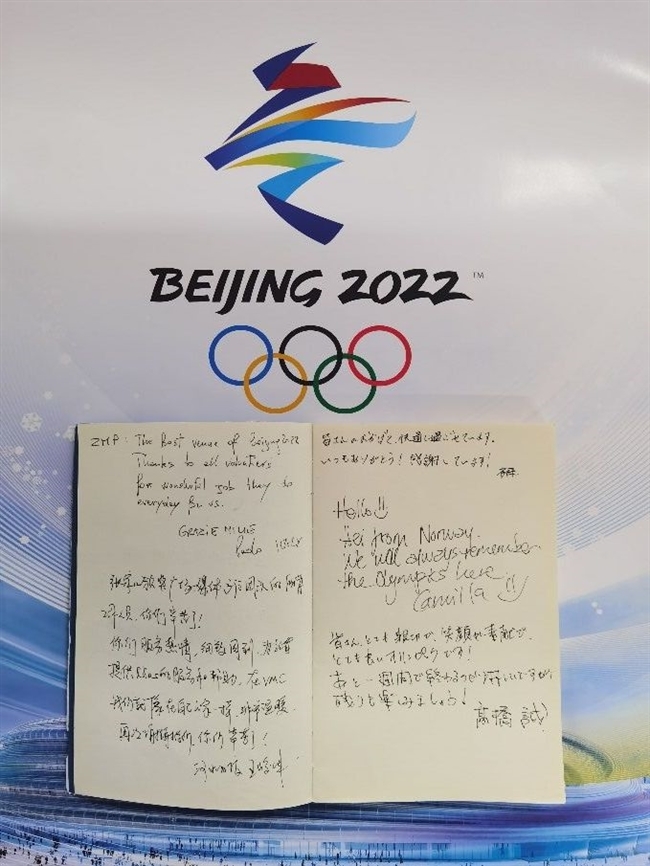 BEIJING 2022™
ZMP: The best venue of Beijing 2022
Thanks to all volunteers
for wonderful job they do
everyday for us.
GRAZIE MILLE
Paolo ITALY
工作人员,你们辛苦了!
你们服务热情,细致周到,为记者
提供的服务和帮助,在VMC
我们就像在自己家一样,非常温暖。
再次谢谢你们,你们辛苦了!
皆さんのおかげで、快適に過ごせています。
いつもありがとう!感謝しています!
Hello!!
Hei from Norway.
We will always remember
the Olympics here
Camilla
皆さん、とても親切で、笑顔が素敵で、
とても良いオリンピックです!
あと一週間で終わるのが寂しいですが、
楽しみましょう!
高橋 誠